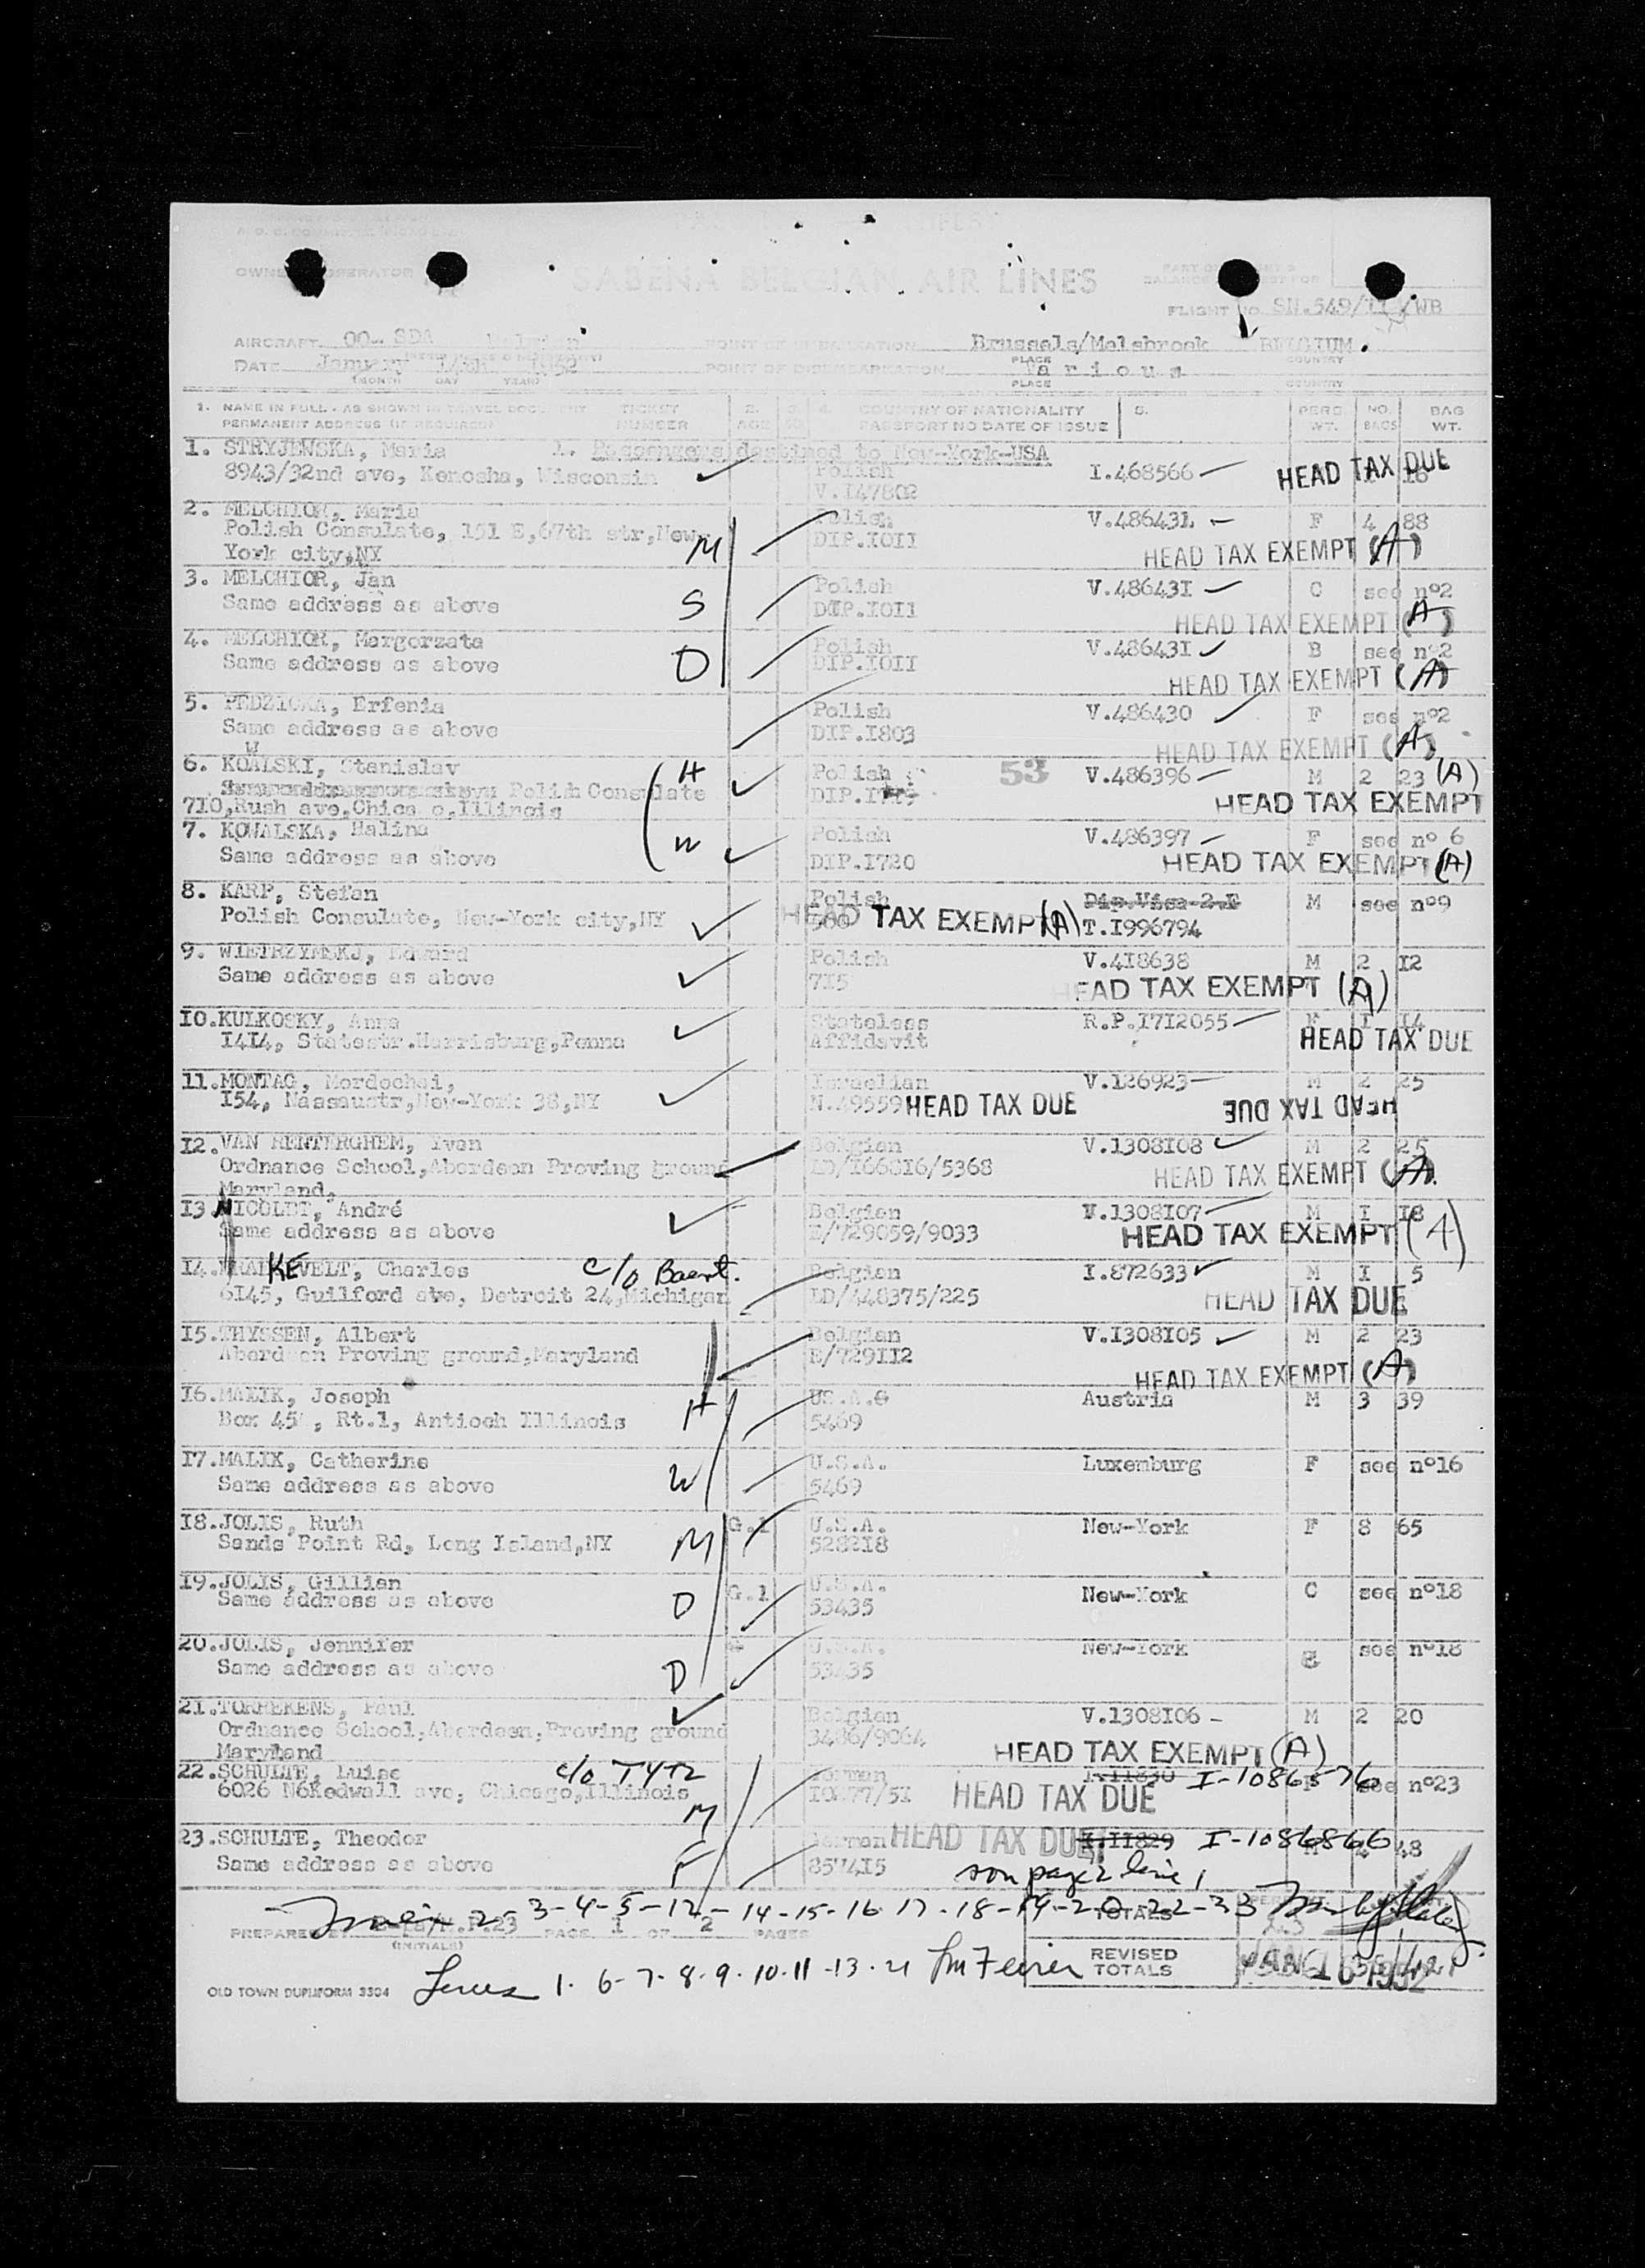 SABENA BELGIAN AIR LINES
FLIGHT NO. SN.549/11 /WB
AIRCRAFT OO-SDA Belgian Brussels/Melsbroek BELGIUM.
PLACE COUNTRY
DATE January 14th 1952 POINT OF DISEMBARKATION Various
(MONTH DAY YEAR) PLACE COUNTRY
1. NAME IN FULL - AS SHOWN IN TRAVEL DOCUMENT TICKET 2. 3. 4. COUNTRY OF NATIONALITY 5. PERS. NO. BAG
PERMANENT ADDRESS (IF REQUIRED) NUMBER AGE PASSPORT NO DATE OF ISSUE WT. BAGS WT.
1. STRYJEWSKA, Maria 1. Passengers destined to New-York-USA
8943/32nd ave, Kenosha, Wisconsin Polish I.468566 HEAD TAX DUE
V.147802
2. MELCHIOR, Maria Polish V.486431 F 4 88
Polish Consulate, 151 E,67th str,New M DIP.1011 HEAD TAX EXEMPT (A)
York city,NY
3. MELCHIOR, Jan Polish V.486431 C see nº2
Same address as above S DIP.1011 HEAD TAX EXEMPT (A)
4. MELCHIOR, Margorzata Polish V.486431 B see nº2
Same address as above D DIP.1011 HEAD TAX EXEMPT (A)
5. PEDZICKA, Erfenia Polish V.486430 F see nº2
Same address as above DIP.1803 HEAD TAX EXEMPT (A)
W
6. KOALSKI, Stanislav H Polish 53 V.486396 M 2 23 (A)
Polish Consulate HEAD TAX EXEMPT
710,Rush ave,Chicago,Illinois
7. KOWALSKA, Halina W Polish V.486397 F see nº 6
Same address as above DIP.1720 HEAD TAX EXEMPT (A)
8. KARP, Stefan Polish Dip.Visa 2.E M see nº9
Polish Consulate, New-York city,NY 500 HEAD TAX EXEMPT (A) T.1996794
9. WIETRZYNSKJ, Edward Polish V.418638 M 2 12
Same address as above 715 HEAD TAX EXEMPT (A)
10.KULKOSKY, Anna Stateless R.P.1712055 F 1 14
1414, Statestr.Harrisburg,Penna Affidavit HEAD TAX DUE
11.MONTAG, Mordochai, Israelian V.126923 M 2 25
154, Nassaustr,New-York 38,NY N.49559 HEAD TAX DUE HEAD TAX DUE
12.VAN RENTERGHEM, Yven Belgian V.1308108 M 2 25
Ordnance School,Aberdeen Proving ground LD/166816/5368 HEAD TAX EXEMPT (A)
Maryland,
13 NICOLDT, André Belgian V.1308107 M 1 18
Same address as above E/729059/9033 HEAD TAX EXEMPT (A)
14. KEVELT, Charles c/o Baert. Belgian I.872633 M 1 5
6145, Guilford ave, Detroit 24,Michigan LD/448375/225 HEAD TAX DUE
15.THYSSEN, Albert Belgian V.1308105 M 2 23
Aberdeen Proving ground,Maryland E/729112 HEAD TAX EXEMPT (A)
16.MALIK, Joseph H U.S.A. Austria M 3 39
Box 45 , Rt.1, Antioch Illinois 5469
17.MALIK, Catherine U.S.A. Luxemburg F see nº16
Same address as above W 5469
18.JOLIS, Ruth G.1 U.S.A. New-York F 8 65
Sands Point Rd, Long Island,NY M 528218
19.JOLIS, Gillian G.1 U.S.A. New-York C see nº18
Same address as above D 53435
20.JOLIS, Jennifer U.S.A. New-York see nº18
Same address as above D 53435
21.TORREKENS, Paul Belgian V.1308106 M 2 20
Ordnance School,Aberdeen,Proving ground 3486/9064
Maryland HEAD TAX EXEMPT (A)
22.SCHULTE, Luise c/o TYTZ German I.11830 I-1086876 F see nº23
6026 N6Kedwall ave, Chicago,Illinois M HEAD TAX DUE
23.SCHULTE, Theodor German HEAD TAX DUE I.11829 I-1086866 M 4 48
Same address as above F 857415 son page 2 line 1
2- 3-4-5-12-14-15-16 17-18-19-20-22-23
PREPARED BY PAGE 1 OF 2 PAGES TOTALS 23
(INITIALS)
REVISED
TOTALS JAN 16 1952
OLD TOWN DUPLIFORM 3304 Lines 1. 6-7-8-9-10-11-13-21